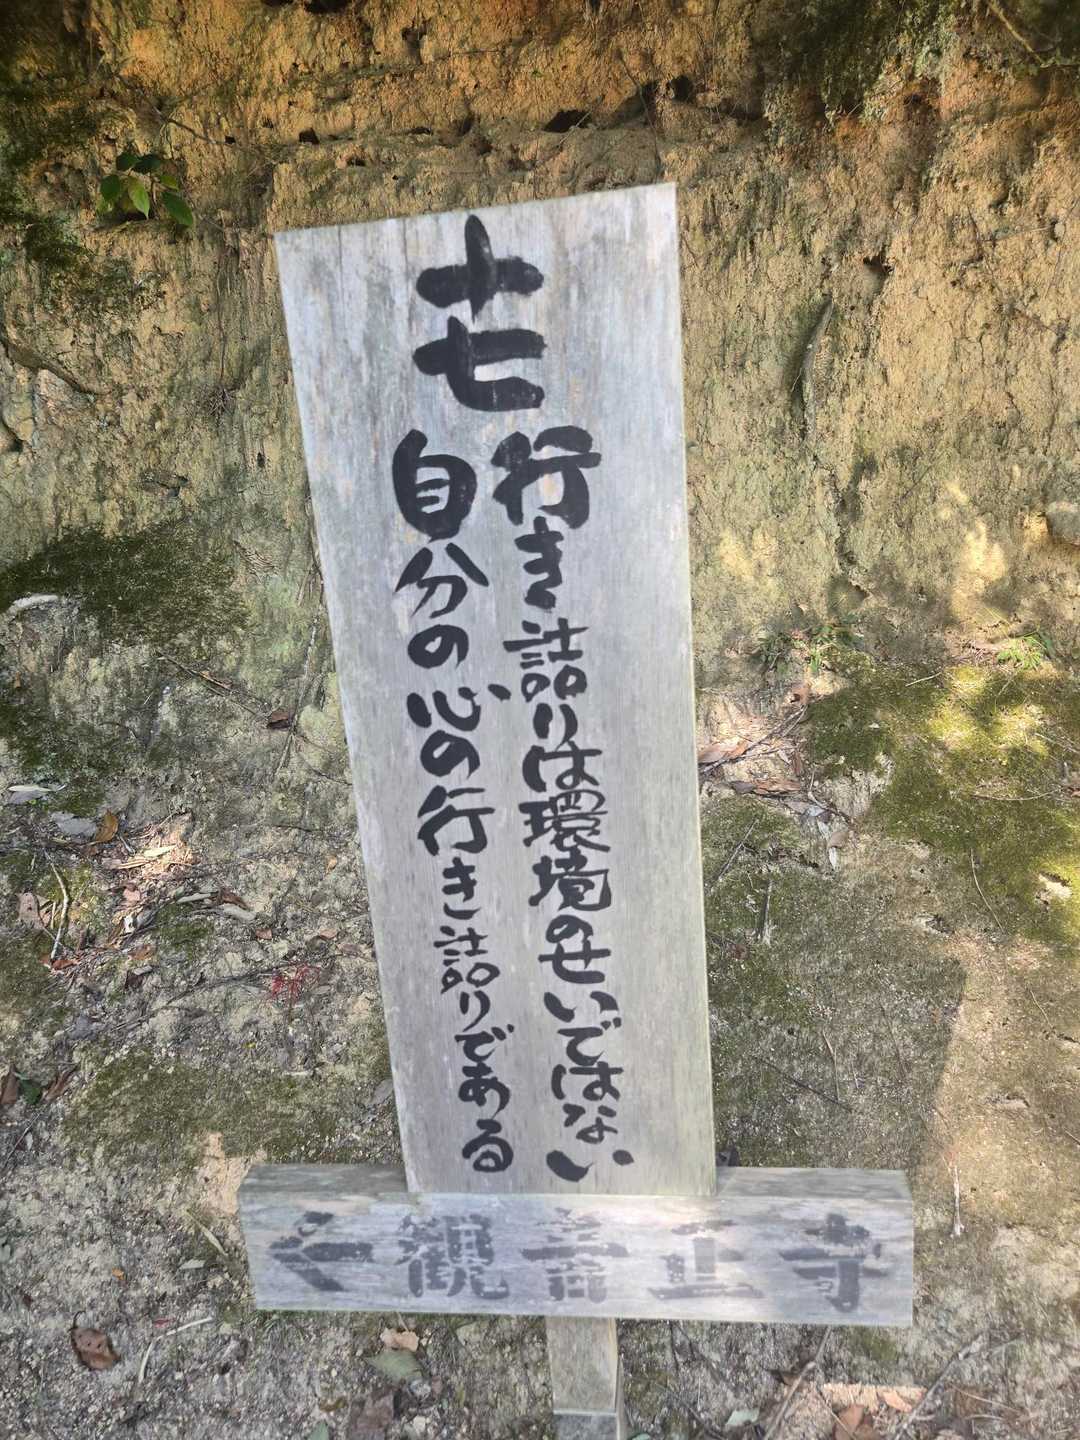 十七
行き詰りは環境のせいではない
自分の心の行き詰りである
←観音正寺